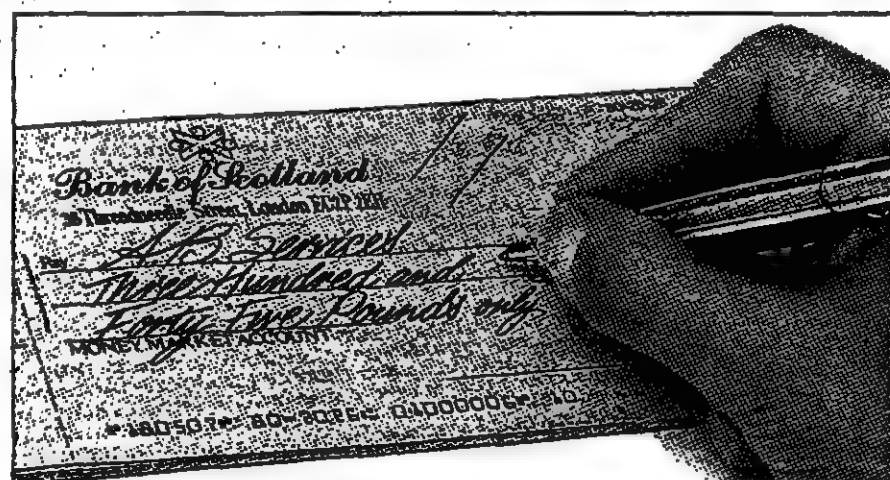 Bank of Scotland
Threadneedle Street, London EC2P 2EH
Pay A.B. Services
Three Hundred and
Forty Five Pounds only
MONEY MARKET ACCOUNT